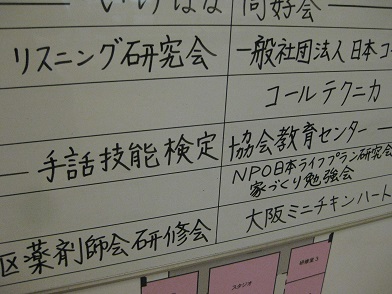 いけばな 同好会
リスニング研究会 一般社団法人日本コ
コールテクニカ
手話技能検定 協会教育センター
NPO日本ライフプラン研究会
家づくり勉強会
区薬剤師会研修会 大阪ミニチキンハート
スタジオ